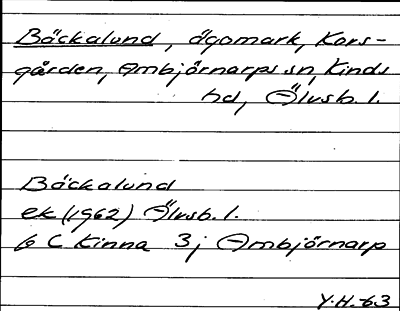 Bäckalund, ägomark, Kors-
gården, Ambjörnarps sn, Kinds
hd, Älvsb. l.
Bäckalund
ek (1962) Älvsb. l.
6 C Kinna 3j Ambjörnarp
Y.H.-63